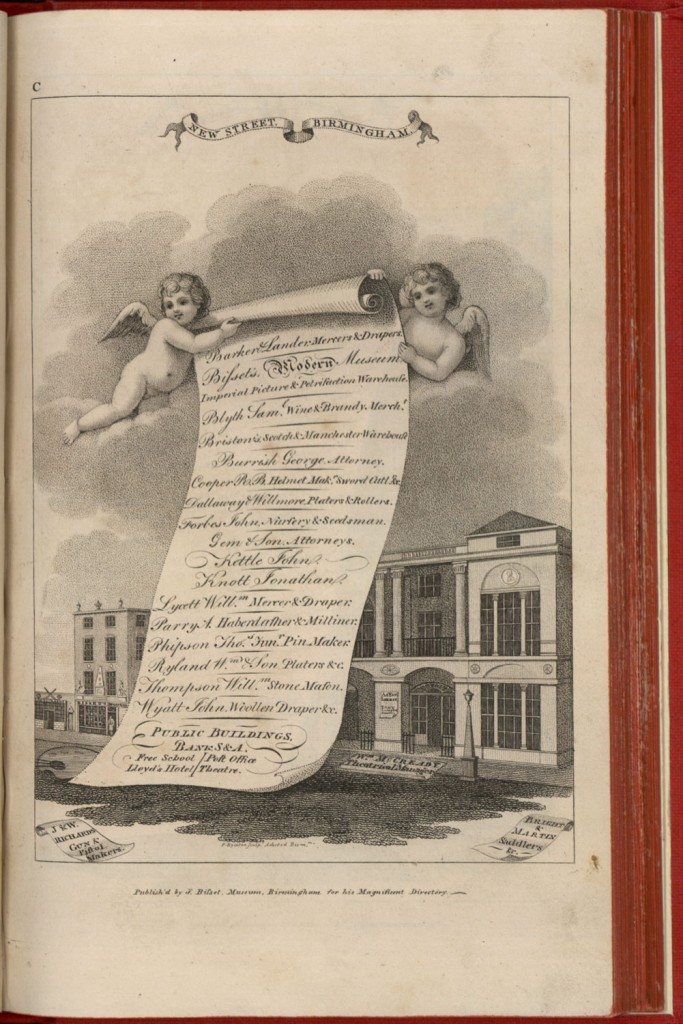 C
NEW STREET. BIRMINGHAM.
Barker & Lander, Mercers & Drapers.
Bisset's, Modern Museum
Imperial Picture & Petrifaction Warehouse.
Blyth Saml. Wine & Brandy, Mercht.
Briston's, Scotch & Manchester Warehouse
Burrish George, Attorney.
Cooper R.B. Helmet Makr. Sword Cutl. &c.
Dallaway & Willmore, Platers & Rollers.
Forbes John, Nursery & Seedsman.
Gem & Son, Attorneys.
Kettle John.
Knott Jonathan.
Lycett Willm. Mercer & Draper.
Parry A. Haberdasher & Milliner.
Phipson Thos. Junr. Pin Maker.
Ryland Wm. & Son, Platers &c.
Thompson Willm. Stone Mason.
Wyatt John, Woollen Draper &c.
PUBLIC BUILDINGS,
BANKS &A.
Free School / Post Office
Lloyd's Hotel / Theatre.
Wm. McCREADY
Theatrical Manager
J & W.
RICHARDS
GUN &
Pistol
Makers.
BRIGHT
&
MARTIN
Saddlers
&c.
Publish'd by J. Bisset, Museum, Birmingham for his Magnificent Directory.